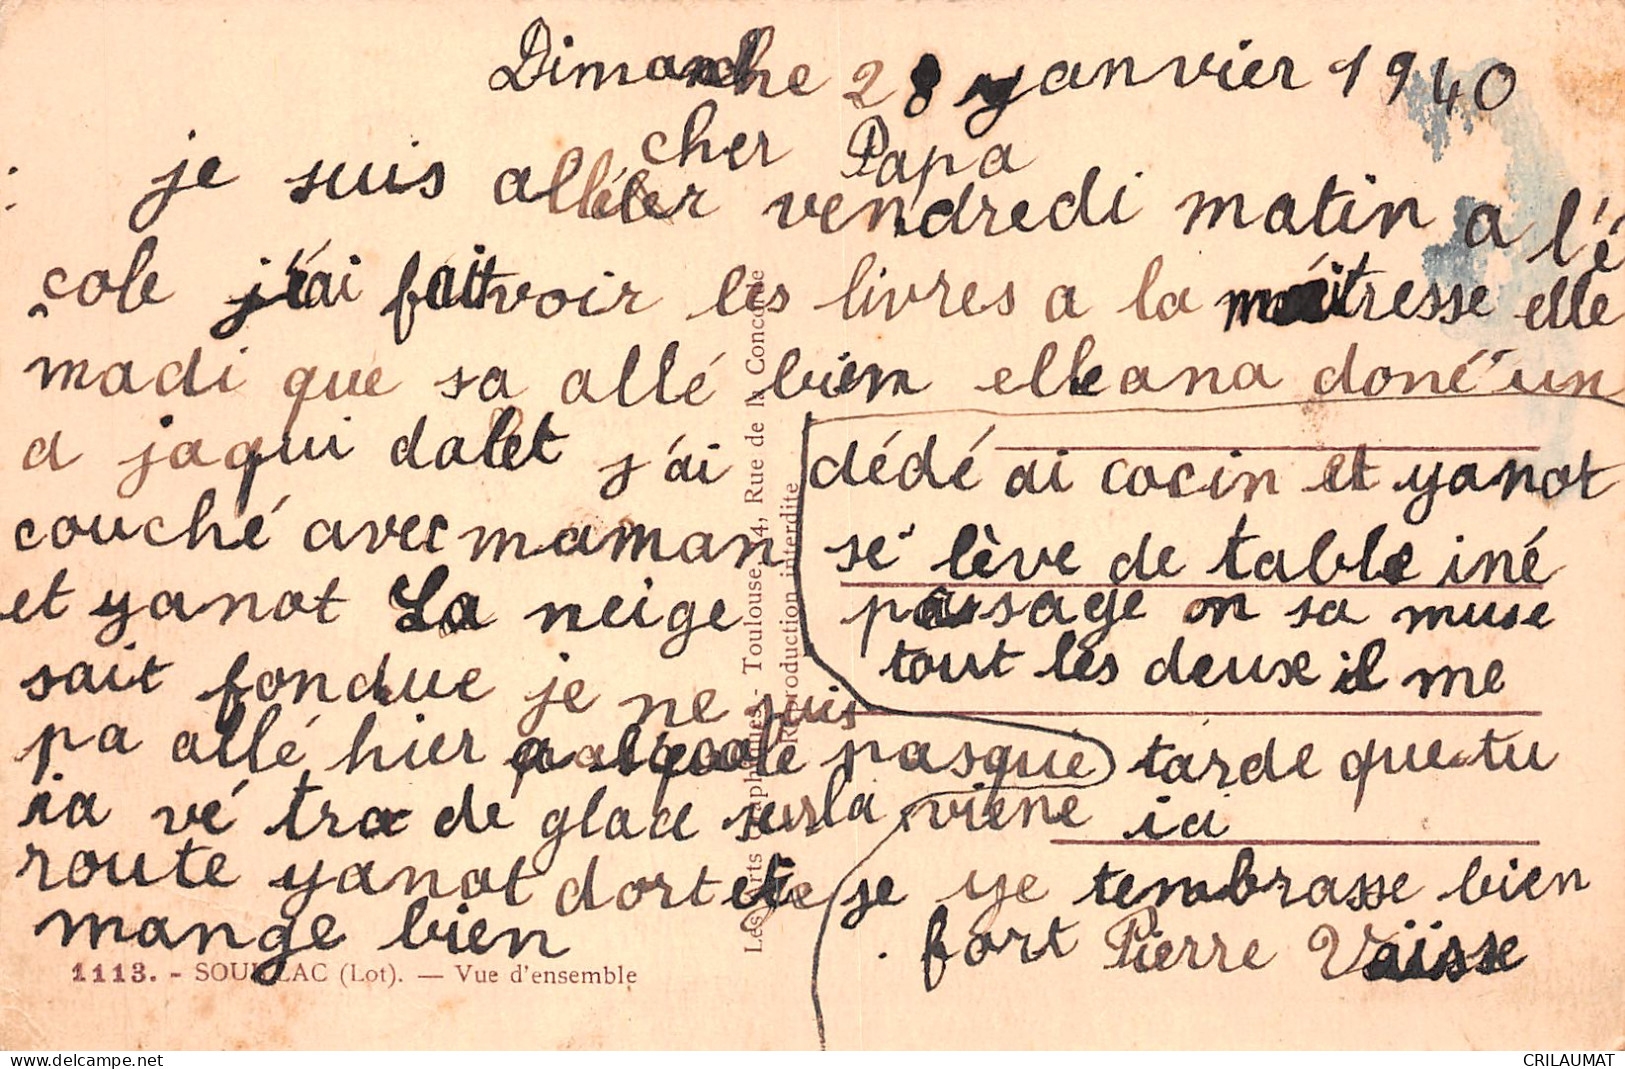 Dimanche 28 yanvier 1940
cher Papa
je suis aller vendredi matin a l'é
cole j'ai fait voir les livres a la maitresse elle
madi que sa allé bien elle ana doné un
a jaqui dalet j'ai
couché avec maman
et yanot La neige
sait fondue je ne suis
pa allé hier a l'école pasque
ia vé tra de glace sur la
route yanot dort et
mange bien
dédé ai cocin et yanot
se lève de table iné
pas sage on sa muse
tout les deux il me
tarde que tu
viene ici
je ye tembrasse bien
fort Pierre Vaïsse
Les Arts Graphiques - Toulouse, 44, Rue de la Concorde
Reproduction interdite
1113. - SOUILLAC (Lot). — Vue d'ensemble
CRILAUMAT